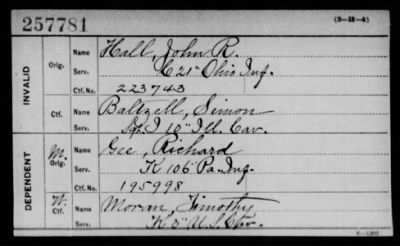 257781 (3-12-4)
INVALID
Orig. Name Hall, John R.
Serv. C 21" Ohio Inf.
Ctf. No. 223743
Ctf. Name Baltzell, Simon
Serv. I 10" Ill. Cav.
DEPENDENT
M. Orig. Name Gee, Richard
Serv. K 106" Pa. Inf.
Ctf. No. 195998
W. Ctf. Name Moran, Timothy
K 5" U.S.